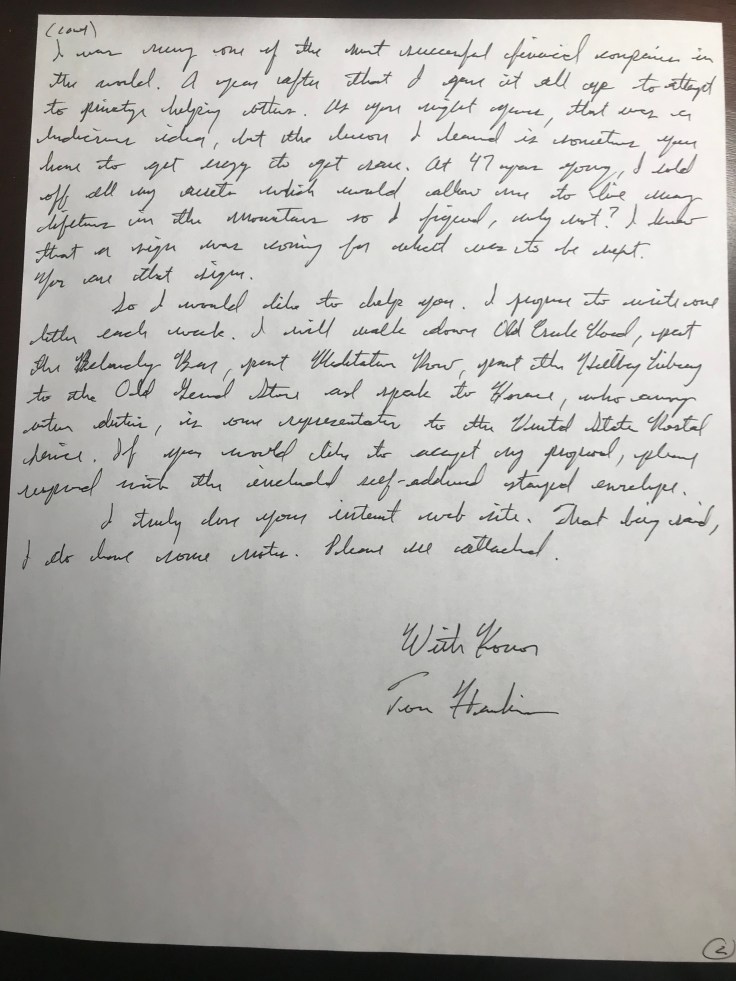 (cont)
I was running one of the most successful financial companies in
the world. A year after that I gave it all up to attempt
to privatize helping others. As you might guess, that was a
ludicrous idea, but the lesson I learned is sometimes you
have to get crazy to get sane. At 47 years young, I sold
off all my assets which would allow me to live many
lifetimes in the mountains so I figured, why not? I knew
that a sign was coming for what was to be next.
You are that sign.
So I would like to help you. I propose to write one
letter each week. I will walk down Old Creek Road, past
the Bay, past Meditation Row, past the Library
to the Old General Store and speak to Horace, who among
other duties, is our representative to the United States Postal
Service. If you would like to accept my proposal, please
respond with the included self-addressed stamped envelope.
I truly love your internet web site. That being said,
I do have some notes. Please see attached.
With Honor
Tom
2